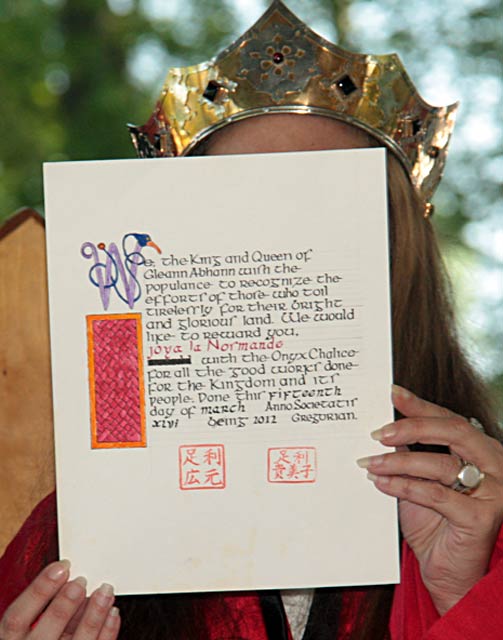 We, the King and Queen of
Gleann Abhann wish the
populance to recognize the
efforts of those who toil
tirelessly for their bright
and glorious land. We would
like to reward you,
joya la Normande
with the Onyx Chalice
for all the good works done
for the Kingdom and its
people. Done this fifteenth
day of march Anno Societatis
xlvi being 2012 Gregorian.
足利
広元
足利
貴美子